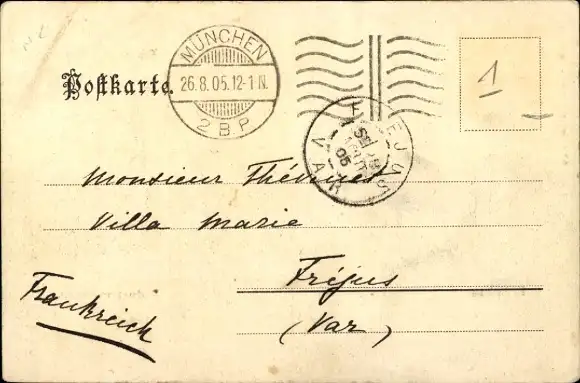 MÜNCHEN
26.8.05.12-1 N.
2 B P
Postkarte.
1
FREJUS
05
VAR
Monsieur
Villa Marie
Fréjus
(Var)
Frankreich